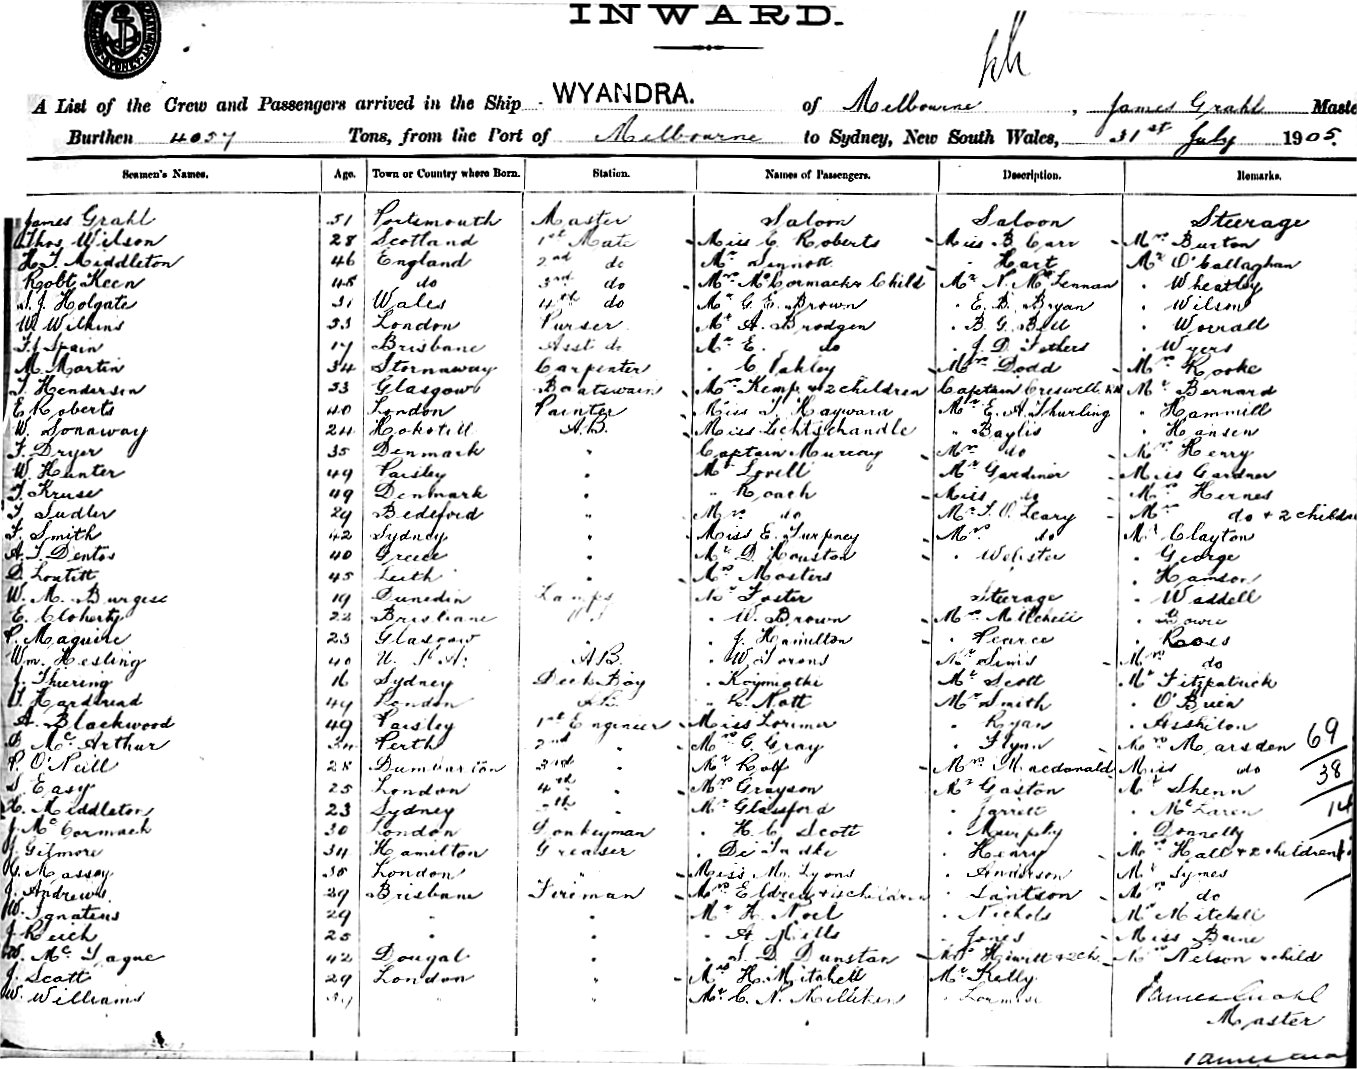 INWARD.
A List of the Crew and Passengers arrived in the Ship WYANDRA. of Melbourne, James Grahl Maste
Burthen 4057 Tons, from the Port of Melbourne to Sydney, New South Wales, 31st July 1905.
Seamen's Names. Age. Town or Country where Born. Station. Names of Passengers. Description. Remarks.
James Grahl 51 Portsmouth Master Saloon Saloon Steerage
Thos Wilson 28 Scotland 1st Mate Miss C. Roberts Miss B Carr Mrs Burton
H. J. Middleton 46 England 2nd do Mr Sinnott " Hart Mr O'Callaghan
Robt Keen 45 do 3rd do Mrs McCormack & Child Mr N. McLennan " Wheatley
S. J. Holgate 31 Wales 4th do Mr G. E. Brown " E. B. Bryan " Wilson
W. Wilkins 33 London Purser Mr A. Brodgen " B. G. Bell " Worrall
F. J. Spain 17 Brisbane Asst do Mr E. do " J. D. Fethers " Wyers
M. Martin 34 Stornaway Carpenter " C Oakley Mrs Dodd Mrs Rooke
J. Henderson 53 Glasgow Boatswain Mrs Kemp & 2 children Captain Creswell Mr Bernard
E. Roberts 40 London Painter Miss J. Hayward Mr E. A. Thurling " Hammill
W. Sonaway 24 A.B. Miss " Baylis " Hansen
F. Dryer 35 Denmark " Captain Murray Mrs do Mrs Henry
W. Hunter 49 Paisley " Mr Lovell Mr Gardiner Miss Gardner
J. Kruse 49 Denmark " " Roach Miss do Mrs Hernes
J. Sudler 29 Bedeford " Mrs do Mr J. O. Leary Mrs do & 2 childre
F. Smith 42 Sydney " Miss E. Turpney Mrs do Mr Clayton
A. J. Dentos 40 Greece " Mr D. Houston " Webster " George
D. Loutitt 45 Leith " Mrs Masters " Hamson
W. M. Burgess 19 Dunedin Lamps Mr Foster Steerage " Waddell
E. Cloherty 22 Brisbane " W. Brown Mrs Mitchell
P. Maguire 23 Glasgow " " J. Hamilton " Pearce " Ross
Wm. Hesling 40 U. S. A. A.B. " W. Torons Mr Simis Mrs do
J. Thiering 16 Sydney Deck Boy " Mr Scott Mr Fitzpatrick
Hardstead 44 London A.B. " R. Nott Mrs Smith " O'Brien
A. Blackwood 49 Paisley 1st Engineer Miss Lorimer " Ryan
McArthur 34 Perth 2nd " Mrs G. Gray " Flynn Mrs Marsden 69
P. O'Neill 28 Dumbarton 3rd " Mr Rolf Mrs Macdonald Miss do 38
S. Easy 25 London 4th " Mrs Grayson Mr Gaston Mr Shenn
H. Middleton 23 Sydney 5th " Mr Glassford " Jarrett " McLaren 14
J. McCormack 30 London Donkeyman " H. C. Scott " Murphy " Donnelly
J. Gilmore 34 Hamilton Greaser " " Henry Mrs Hall & 2 children
G. Massey 35 London " Miss M. Lyons " Anderson Mr Symes
J. Andrews 29 Brisbane Fireman Mrs Eldred & children " Mrs do
W. Ignatius 29 " " Mr H. Noel " Nichols Mr Mitchell
J. Reich 25 " " " A. Mills " Jones Miss
W. McTague 42 Dougal " " S. D. Dunstan Mrs Hewitt & 2 ch Mrs Nelson & child
J. Scott 29 London " Mrs H. Mitchell Mr Kelly
W. Williams " " Mr C. N. Milliken
James Grahl
Master